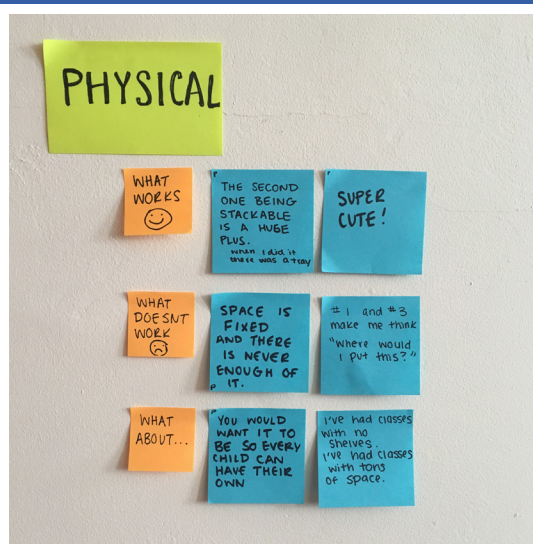 PHYSICAL
WHAT
WORKS
THE SECOND
ONE BEING
STACKABLE
IS A HUGE
PLUS.
when I did it
there was a tray
SUPER
CUTE!
WHAT
DOESNT
WORK
SPACE IS
FIXED
AND THERE
IS NEVER
ENOUGH OF
IT.
#1 and #3
make me think
"Where would
I put this?"
WHAT
ABOUT...
YOU WOULD
WANT IT TO
BE SO EVERY
CHILD CAN
HAVE THEIR
OWN
I've had classes
with no
shelves.
I've had classes
with tons
of space.